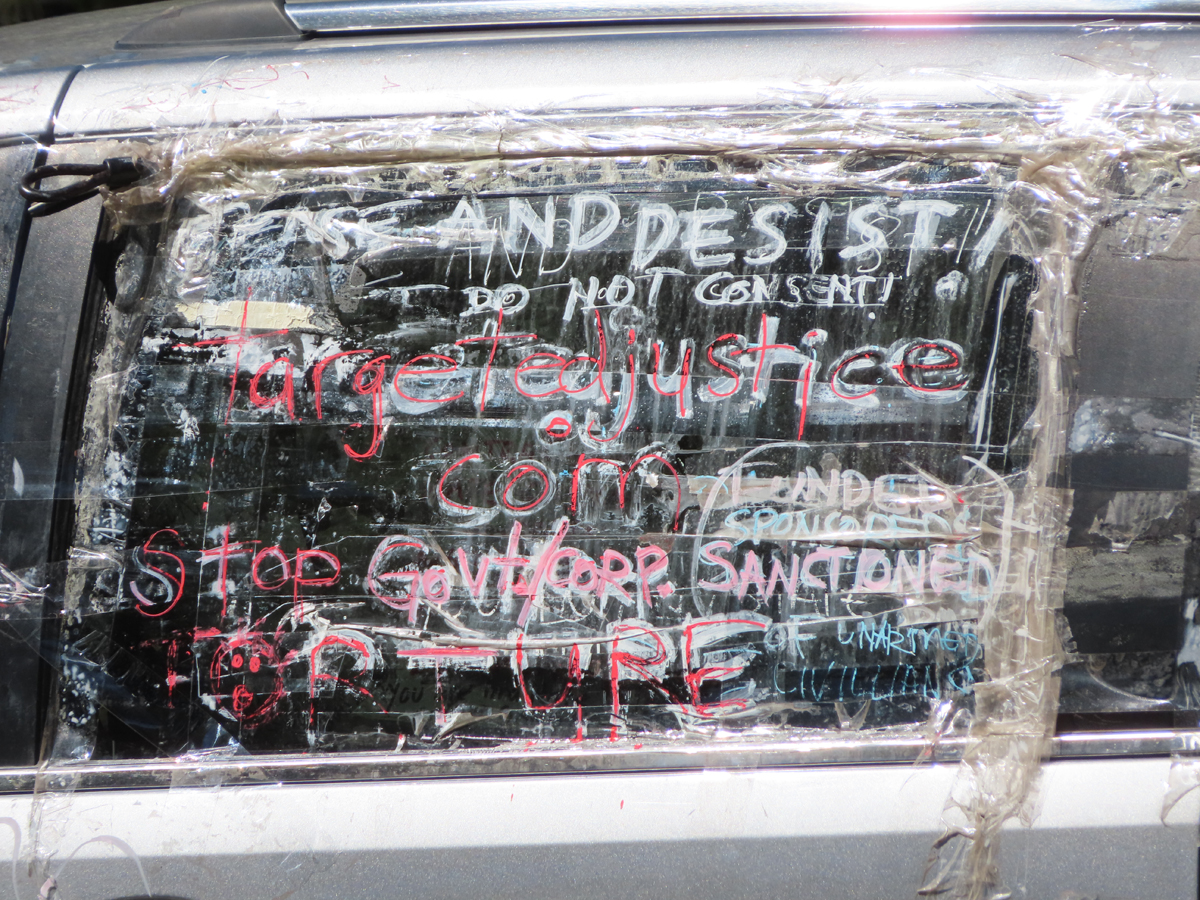 CEASE AND DESIST!
I DO NOT CONSENT!
Targetedjustice
.
com
FUNDED
SPONSORED &
STOP GOVT/CORP. SANCTIONED
TORTURE
OF UNARMED
CIVILIANS